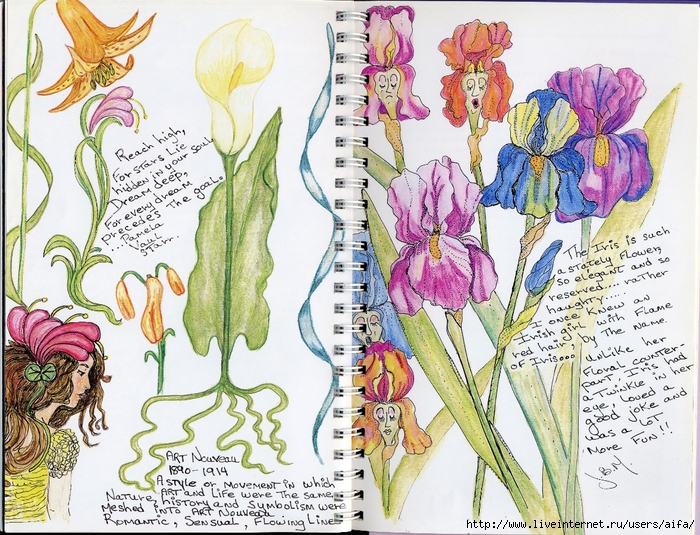 Reach high,
For stars lie
hidden in your soul.
Dream deep,
For every dream
precedes the goal.
...Pamela
Vaul
Starr...
ART Nouveau
1890-1914
A style or movement in which
ART and Life were the same.
Nature, history and symbolism were
meshed into ART Nouveau
Romantic, Sensual, Flowing Lines
The Iris is such
a stately flower,
so elegant and so
reserved.... rather
haughty....
I once knew an
Irish girl with Flame
red hair, by the name
of Iris...
Unlike her
floral counter-
part, Iris had
a twinkle in her
eye, loved a
good joke and
was a LOT
More Fun!!
http://www.liveinternet.ru/users/aifa/